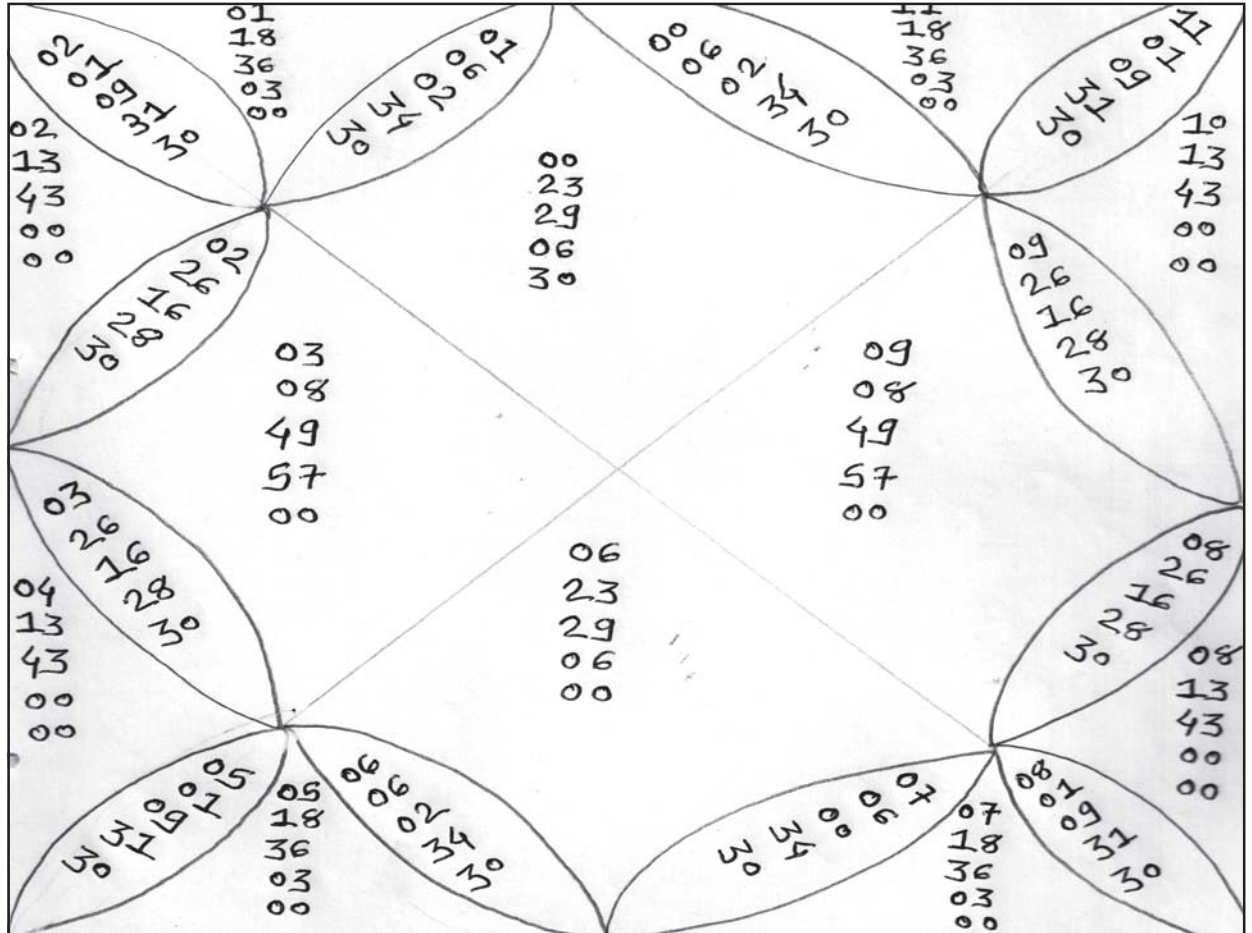 02
01
09
31
30
01
18
36
03
00
01
06
02
34
30
00
06
02
34
30
11
18
36
03
00
11
01
09
31
30
02
13
43
00
00
00
23
29
06
30
10
13
43
00
00
02
26
16
28
30
09
26
16
28
30
03
08
49
57
00
09
08
49
57
00
03
26
16
28
30
06
23
29
06
00
08
26
16
28
30
04
13
43
00
00
08
13
43
00
00
05
01
09
31
30
05
18
36
03
00
06
06
02
34
30
07
06
00
34
30
07
18
36
03
00
08
01
09
31
30